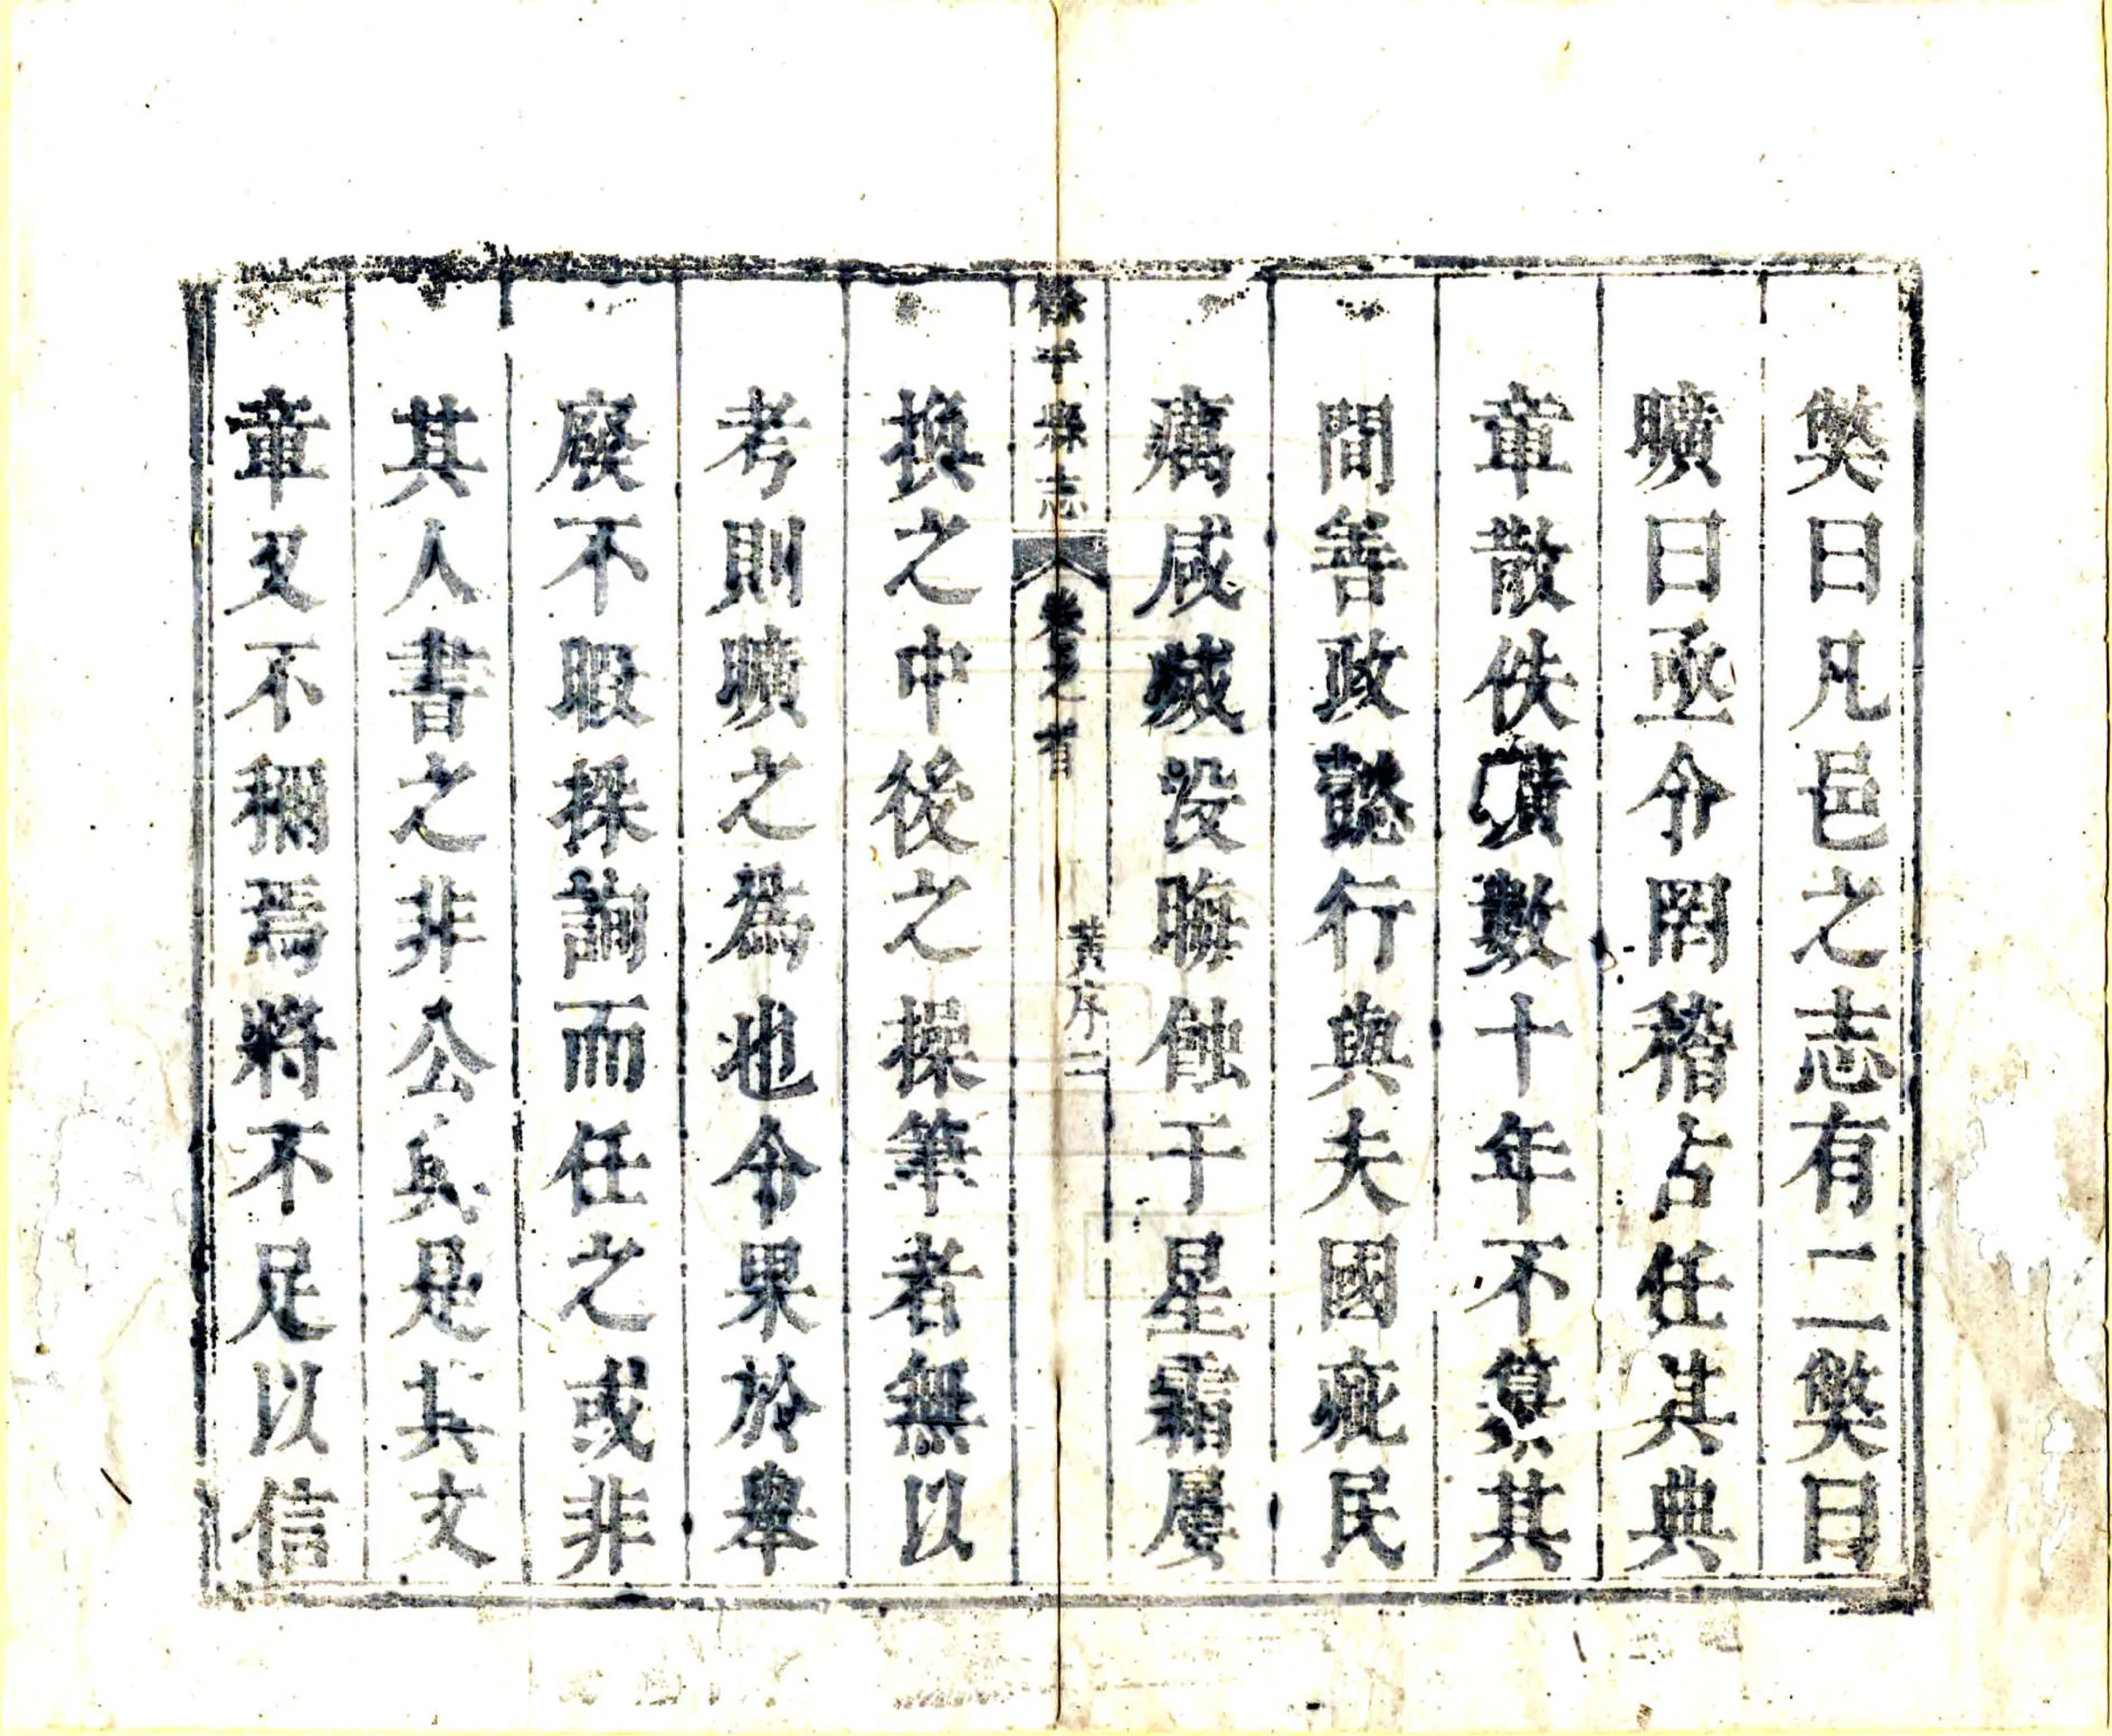 獘曰凡邑之志有二獘曰
曠曰丞令罔稽占任其典
章散佚曠數十年不纂其
間善政懿行與夫國疵民
癘咸滅没晦蝕于星霜屢
餘干縣志 卷之首 黃序二
換之中後之操筆者無以
考則曠之爲也令果於舉
廢不暇採詢而任之或非
其人書之非公與是其文
章又不稱焉將不足以信